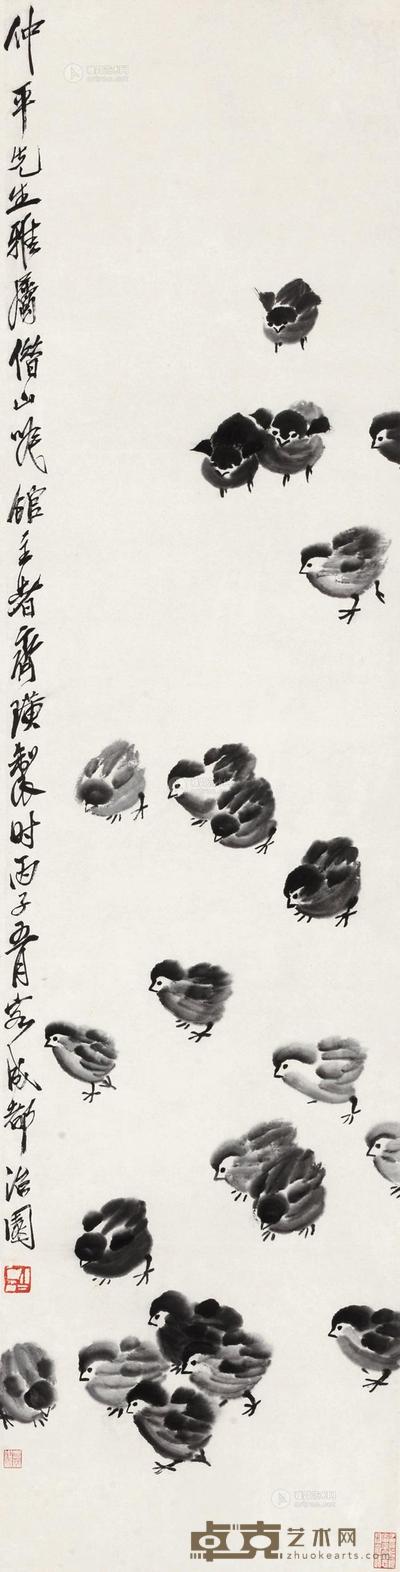 仲平先生雅属借山吟馆主者齐璜制时丙子五月客成都治园
卓克艺术网
zhuokearts.com